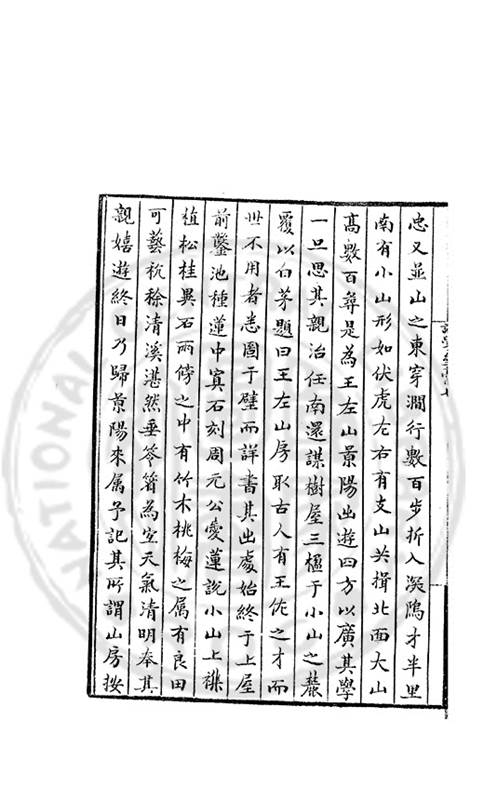 忠又並山之東穿澗行數百步折入深隖才半里
南有小山形如伏虎左右有支山共揖北面大山
高數百尋是為王左山景陽出遊四方以廣其學
一旦思其親治任南還謀樹屋三楹于小山之麓
覆以白茅題曰王左山房取古人有王佐之才而
世不用者悉圖于壁而詳書其出處始終于上屋
前鑿池種蓮中寘石刻周元公愛蓮說小山上襍
植松桂異石兩傍之中有竹木桃梅之属有良田
可藝秔稌清溪湛然垂笭箵為室天氣清明奉其
親嬉遊終日乃歸景陽來属予記其所謂山房按
NATIONAL